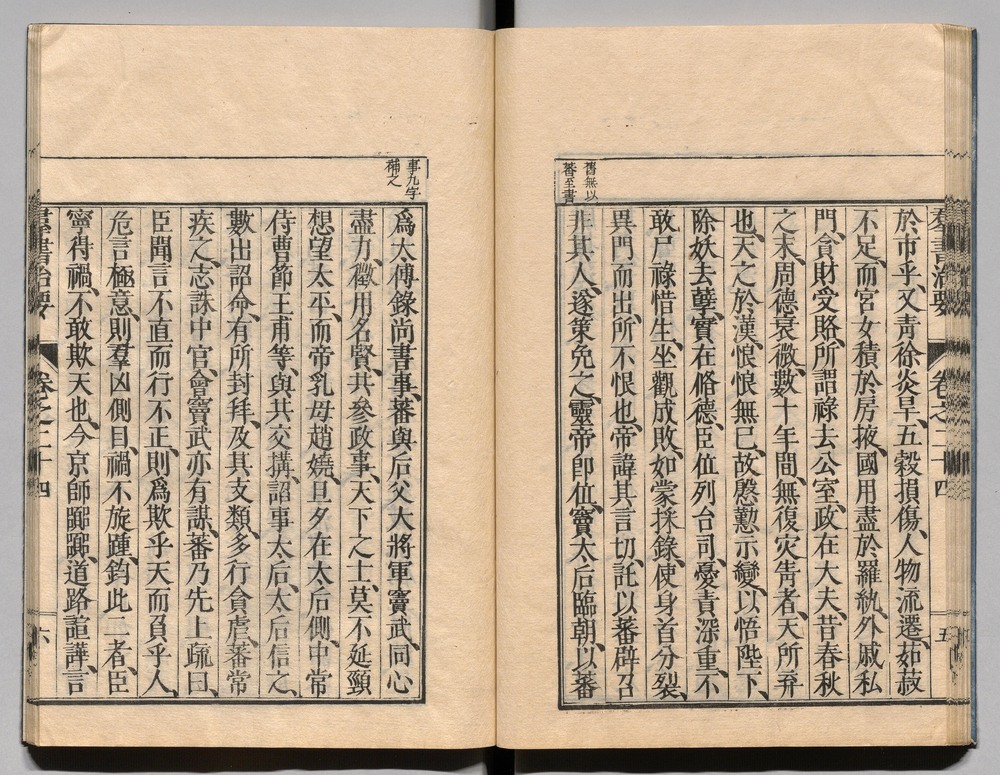 羣書治要 卷之二十四 五
於市乎、又靑徐炎旱、五穀損傷、人物流遷、茹菽
不足、而宮女積於房掖、國用盡於羅紈、外戚私
門、貪財受賂、所謂祿去公室、政在大夫、昔春秋
之末、周德衰微、數十年間、無復灾眚者、天所弃
也、天之於漢、悢悢無已、故慇懃示變、以悟陛下、
除妖去孽、實在脩德、臣位列台司、憂責深重、不
敢尸祿惜生、坐觀成敗、如蒙採錄、使身首分裂、
異門而出、所不恨也、帝諱其言切、託以蕃辟召
非其人、遂策免之、靈帝卽位、竇太后臨朝、以蕃
舊無以
蕃至書
事九字
補之
爲太傅錄尚書事、蕃與后父大將軍竇武、同心
盡力、徵用名賢、共參政事、天下之士、莫不延頸
想望太平、而帝乳母趙嬈、旦夕在太后側、中常
侍曹節王甫等、與共交搆、諂事太后、太后信之、
數出詔命、有所封拜、及其支類、多行貪虐、蕃常
疾之、志誅中官、會竇武亦有謀、蕃乃先上疏曰、
臣聞言不直而行不正、則爲欺乎天而負乎人、
危言極意、則羣凶側目、禍不旋踵、鈞此二者、臣
寧得禍、不敢欺天也、今京師嚻嚻、道路諠譁、言
羣書治要 卷之二十四 六